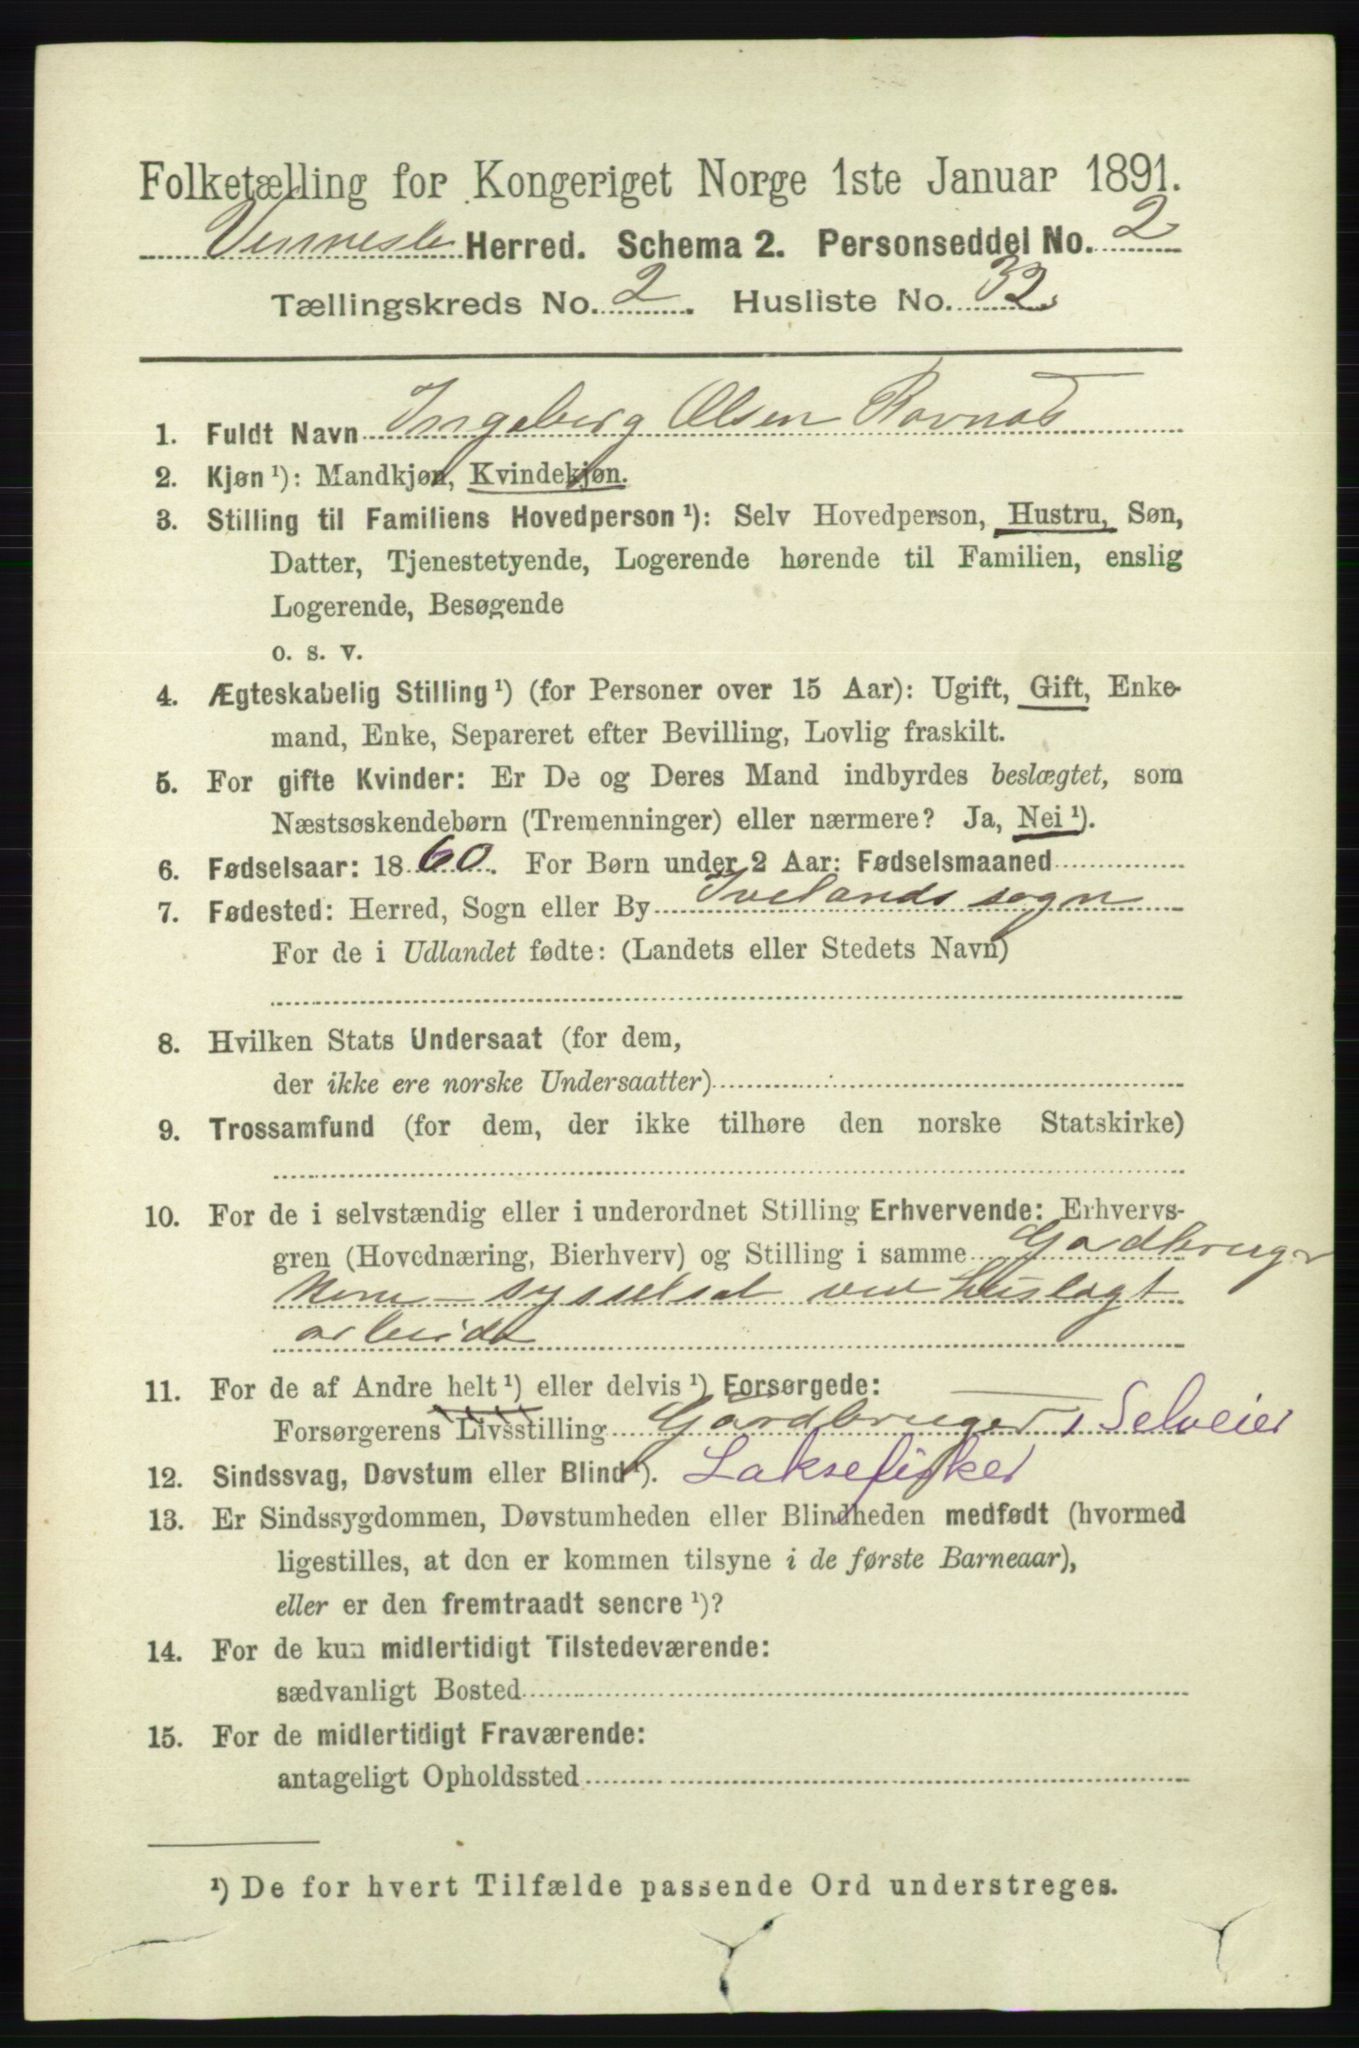 Folketælling for Kongeriget Norge 1ste Januar 1891.
Vennesla Herred. Schema 2. Personseddel No. 2
Tællingskreds No. 2. Husliste No. 32
1. Fuldt Navn Ingeberg Olsen Ravnås
2. Kjøn ¹): Mandkjøn, Kvindekjøn.
3. Stilling til Familiens Hovedperson ¹): Selv Hovedperson, Hustru, Søn,
Datter, Tjenestetyende, Logerende hørende til Familien, enslig
Logerende, Besøgende
o. s. v.
4. Ægteskabelig Stilling ¹) (for Personer over 15 Aar): Ugift, Gift, Enke-
mand, Enke, Separeret efter Bevilling, Lovlig fraskilt.
5. For gifte Kvinder: Er De og Deres Mand indbyrdes beslægtet, som
Næstsøskendebørn (Tremenninger) eller nærmere? Ja, Nei ¹).
6. Fødselsaar: 1860. For Børn under 2 Aar: Fødselsmaaned
7. Fødested: Herred, Sogn eller By Ivelands sogn
For de i Udlandet fødte: (Landets eller Stedets Navn)
8. Hvilken Stats Undersaat (for dem,
der ikke ere norske Undersaatter)
9. Trossamfund (for dem, der ikke tilhøre den norske Statskirke)
10. For de i selvstændig eller i underordnet Stilling Erhvervende: Erhvervs-
gren (Hovednæring, Bierhverv) og Stilling i samme Gardbruger
kone - sysselsat ved huslagt
arbeide
11. For de af Andre helt ¹) eller delvis ¹) Forsørgede:
Forsørgerens Livsstilling Gårdbruger, Selveier
12. Sindssvag, Døvstum eller Blind ¹). Laksefisker
13. Er Sindssygdommen, Døvstumheden eller Blindheden medfødt (hvormed
ligestilles, at den er kommen tilsyne i de første Barneaar),
eller er den fremtraadt senere ¹)?
14. For de kun midlertidigt Tilstedeværende:
sædvanligt Bosted
15. For de midlertidigt Fraværende:
antageligt Opholdssted
¹) De for hvert Tilfælde passende Ord understreges.